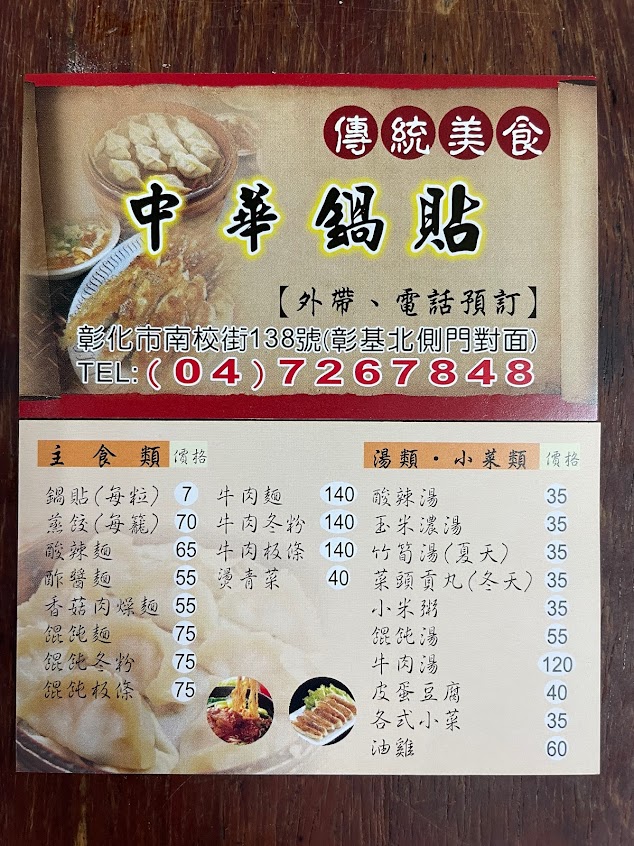 傳統美食
中華鍋貼
【外帶、電話預訂】
彰化市南校街138號(彰基北側門對面)
TEL:(04)7267848
主食類 價格
鍋貼(每粒) 7
蒸餃(每籠) 70
酸辣麵 65
酢醬麵 55
香菇肉燥麵 55
餛飩麵 75
餛飩冬粉 75
餛飩板條 75
牛肉麵 140
牛肉冬粉 140
牛肉板條 140
燙青菜 40
湯類・小菜類 價格
酸辣湯 35
玉米濃湯 35
竹筍湯(夏天) 35
菜頭貢丸(冬天) 35
小米粥 35
餛飩湯 55
牛肉湯 120
皮蛋豆腐 40
各式小菜 35
油雞 60